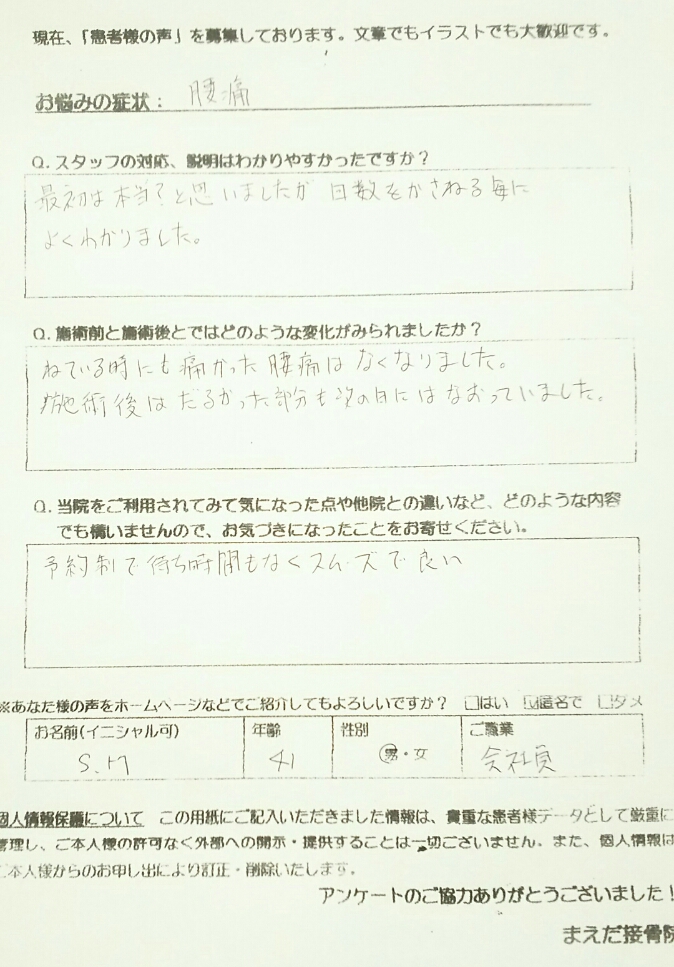 現在、「患者様の声」を募集しております。文章でもイラストでも大歓迎です。
お悩みの症状： 腰痛
Q. スタッフの対応、説明はわかりやすかったですか？
最初は本当？と思いましたが 日数をかさねる毎に
よくわかりました。
Q. 施術前と施術後とではどのような変化がみられましたか？
ねている時にも痛かった腰痛はなくなりました。
施術後はだるかった部分も次の日にはなおっていました。
Q. 当院をご利用されてみて気になった点や他院との違いなど、どのような内容
でも構いませんので、お気づきになったことをお寄せください。
予約制で待ち時間もなくスムーズで良い
※あなた様の声をホームページなどでご紹介してもよろしいですか？ □はい ☑匿名で □ダメ
お名前(イニシャル可) 年齢 性別 ご職業
S. 41 男・女 会社員
個人情報保護について この用紙にご記入いただきました情報は、貴重な患者様データとして厳重に
管理し、ご本人様の許可なく外部への開示・提供することは一切ございません。また、個人情報は
ご本人様からのお申し出により訂正・削除いたします。
アンケートのご協力ありがとうございました！
まえだ接骨院